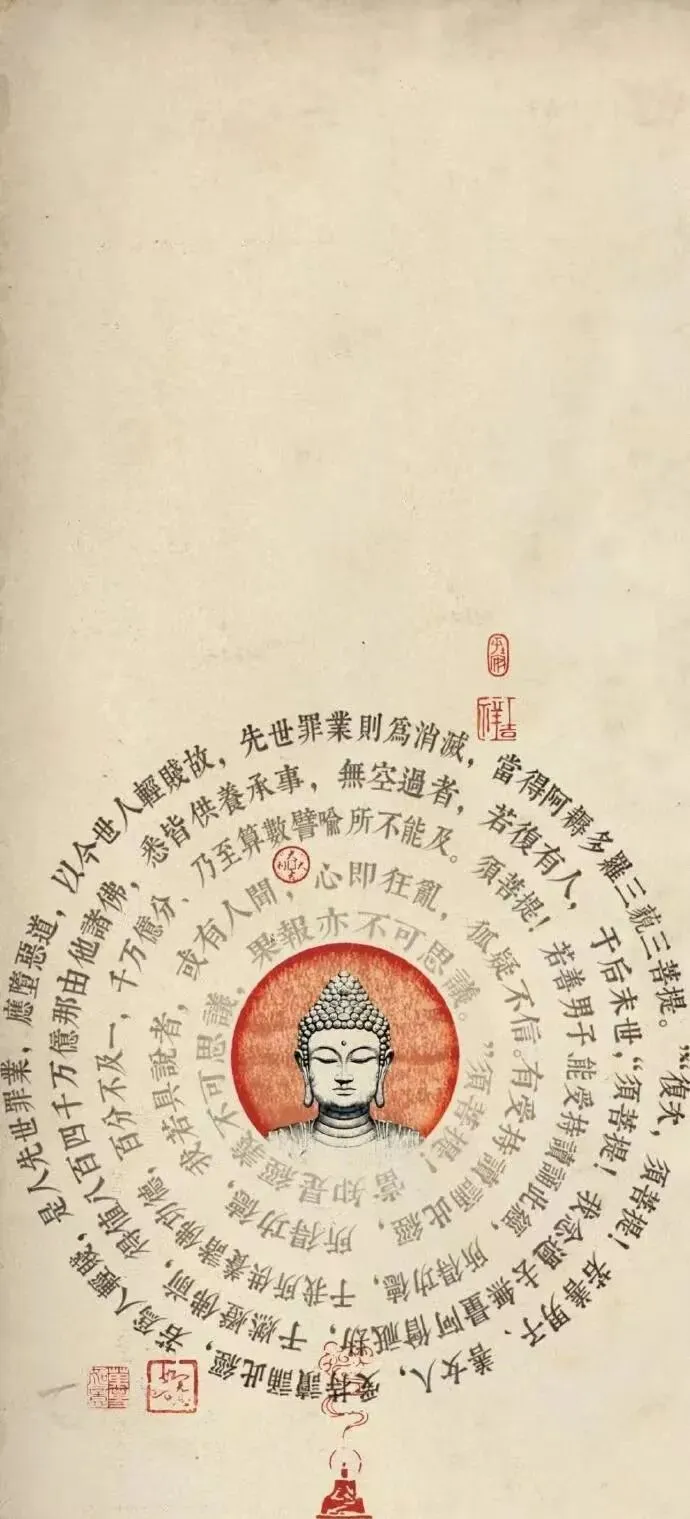 ”“復夫，須菩提！若善男子、善女人，受持讀誦此經，若爲人輕賤，是人先世罪業，應墮惡道，以今世人輕賤故，先世罪業則爲消滅，當得阿耨多羅三藐三菩提。
“須菩提！我念過去無量阿僧祇劫，于燃燈佛前，得值八百四千万億那由他諸佛，悉皆供養承事，無空過者，若復有人，于后末世，
能受持讀誦此經，所得功德，于我所供養諸佛功德，百分不及一，千万億分、乃至算數譬喻所不能及。須菩提！若善男子
有受持讀誦此經，所得功德，我若具說者，或有人聞，心即狂亂，狐疑不信。
“須菩提！當知是經義不可思議，果報亦不可思議。